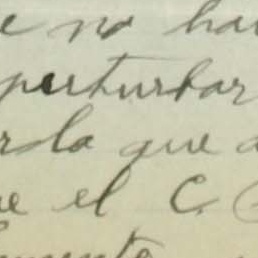 e no ha
perturbar
rla que a
ue el C.
mente